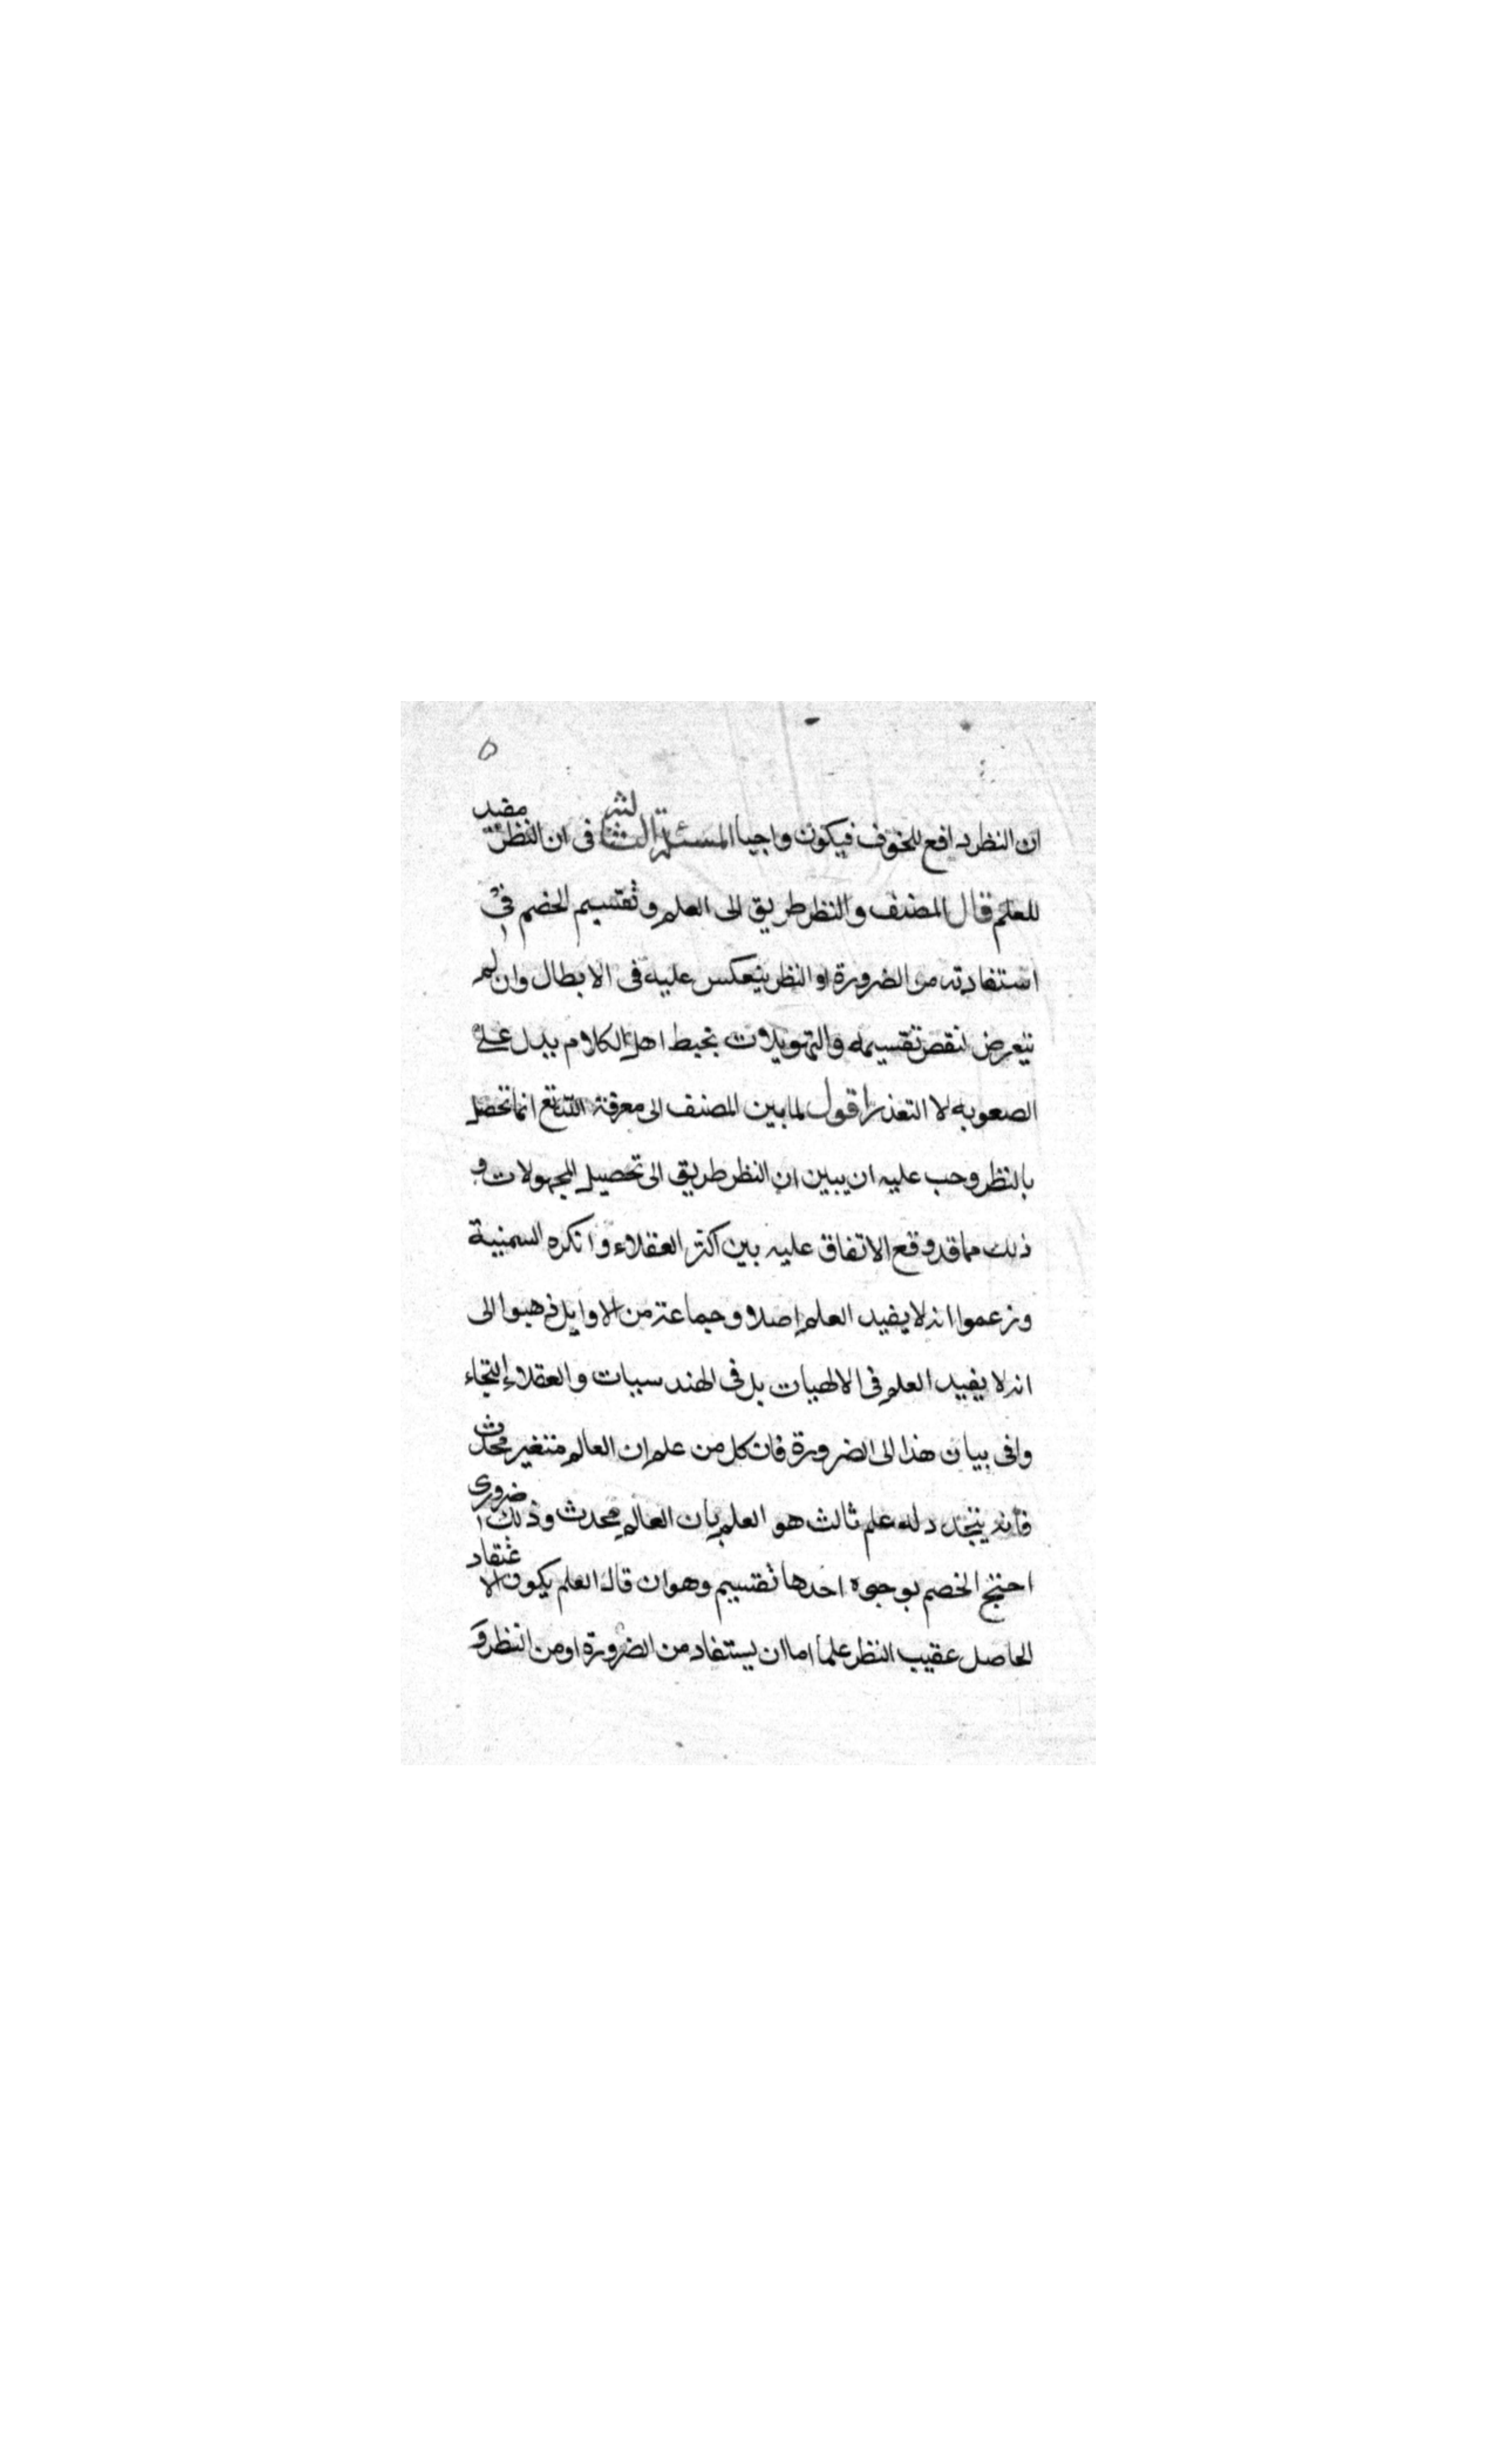 ٥
ان النظر دافع للخوف فيكون واجبا المسئلة الثالثة في ان النظر مفيد
للعلم قال المصنف والنظر طريق الى العلم وتقسيم الخصم في
استفادته من الضرورة او النظر ينعكس عليه في الابطال وان لم
نتعرض لنقض تقسيمه والتهويلات بخبط اهل الكلام يدل على
الصعوبه لا التعذر اقول لما بين المصنف الى معرفة انما تحصل
بالنظر وجب عليه ان يبين ان النظر طريق الى تحصيل المجهولات و
ذلك مما قد وقع الاتفاق عليه بين اكثر العقلاء وانكره السمنية
وزعموا انه لا يفيد العلم اصلا وجماعة من الاوايل ذهبوا الى
انه لا يفيد العلم في الالهيات بل في الهندسيات والعقلاء التجاء
وافى بيان هذا الى الضرورة فان كل من علم ان العالم متغير محدث
فانه يتجدد له علم ثالث هو العلم بان العالم محدث وذلك ضروري
احتج الخصم بوجوه احدها تقسيم وهو ان قال العلم يكون الاعتقاد
الحاصل عقيب النظر علما اما ان يستفاد من الضرورة او من النظر و